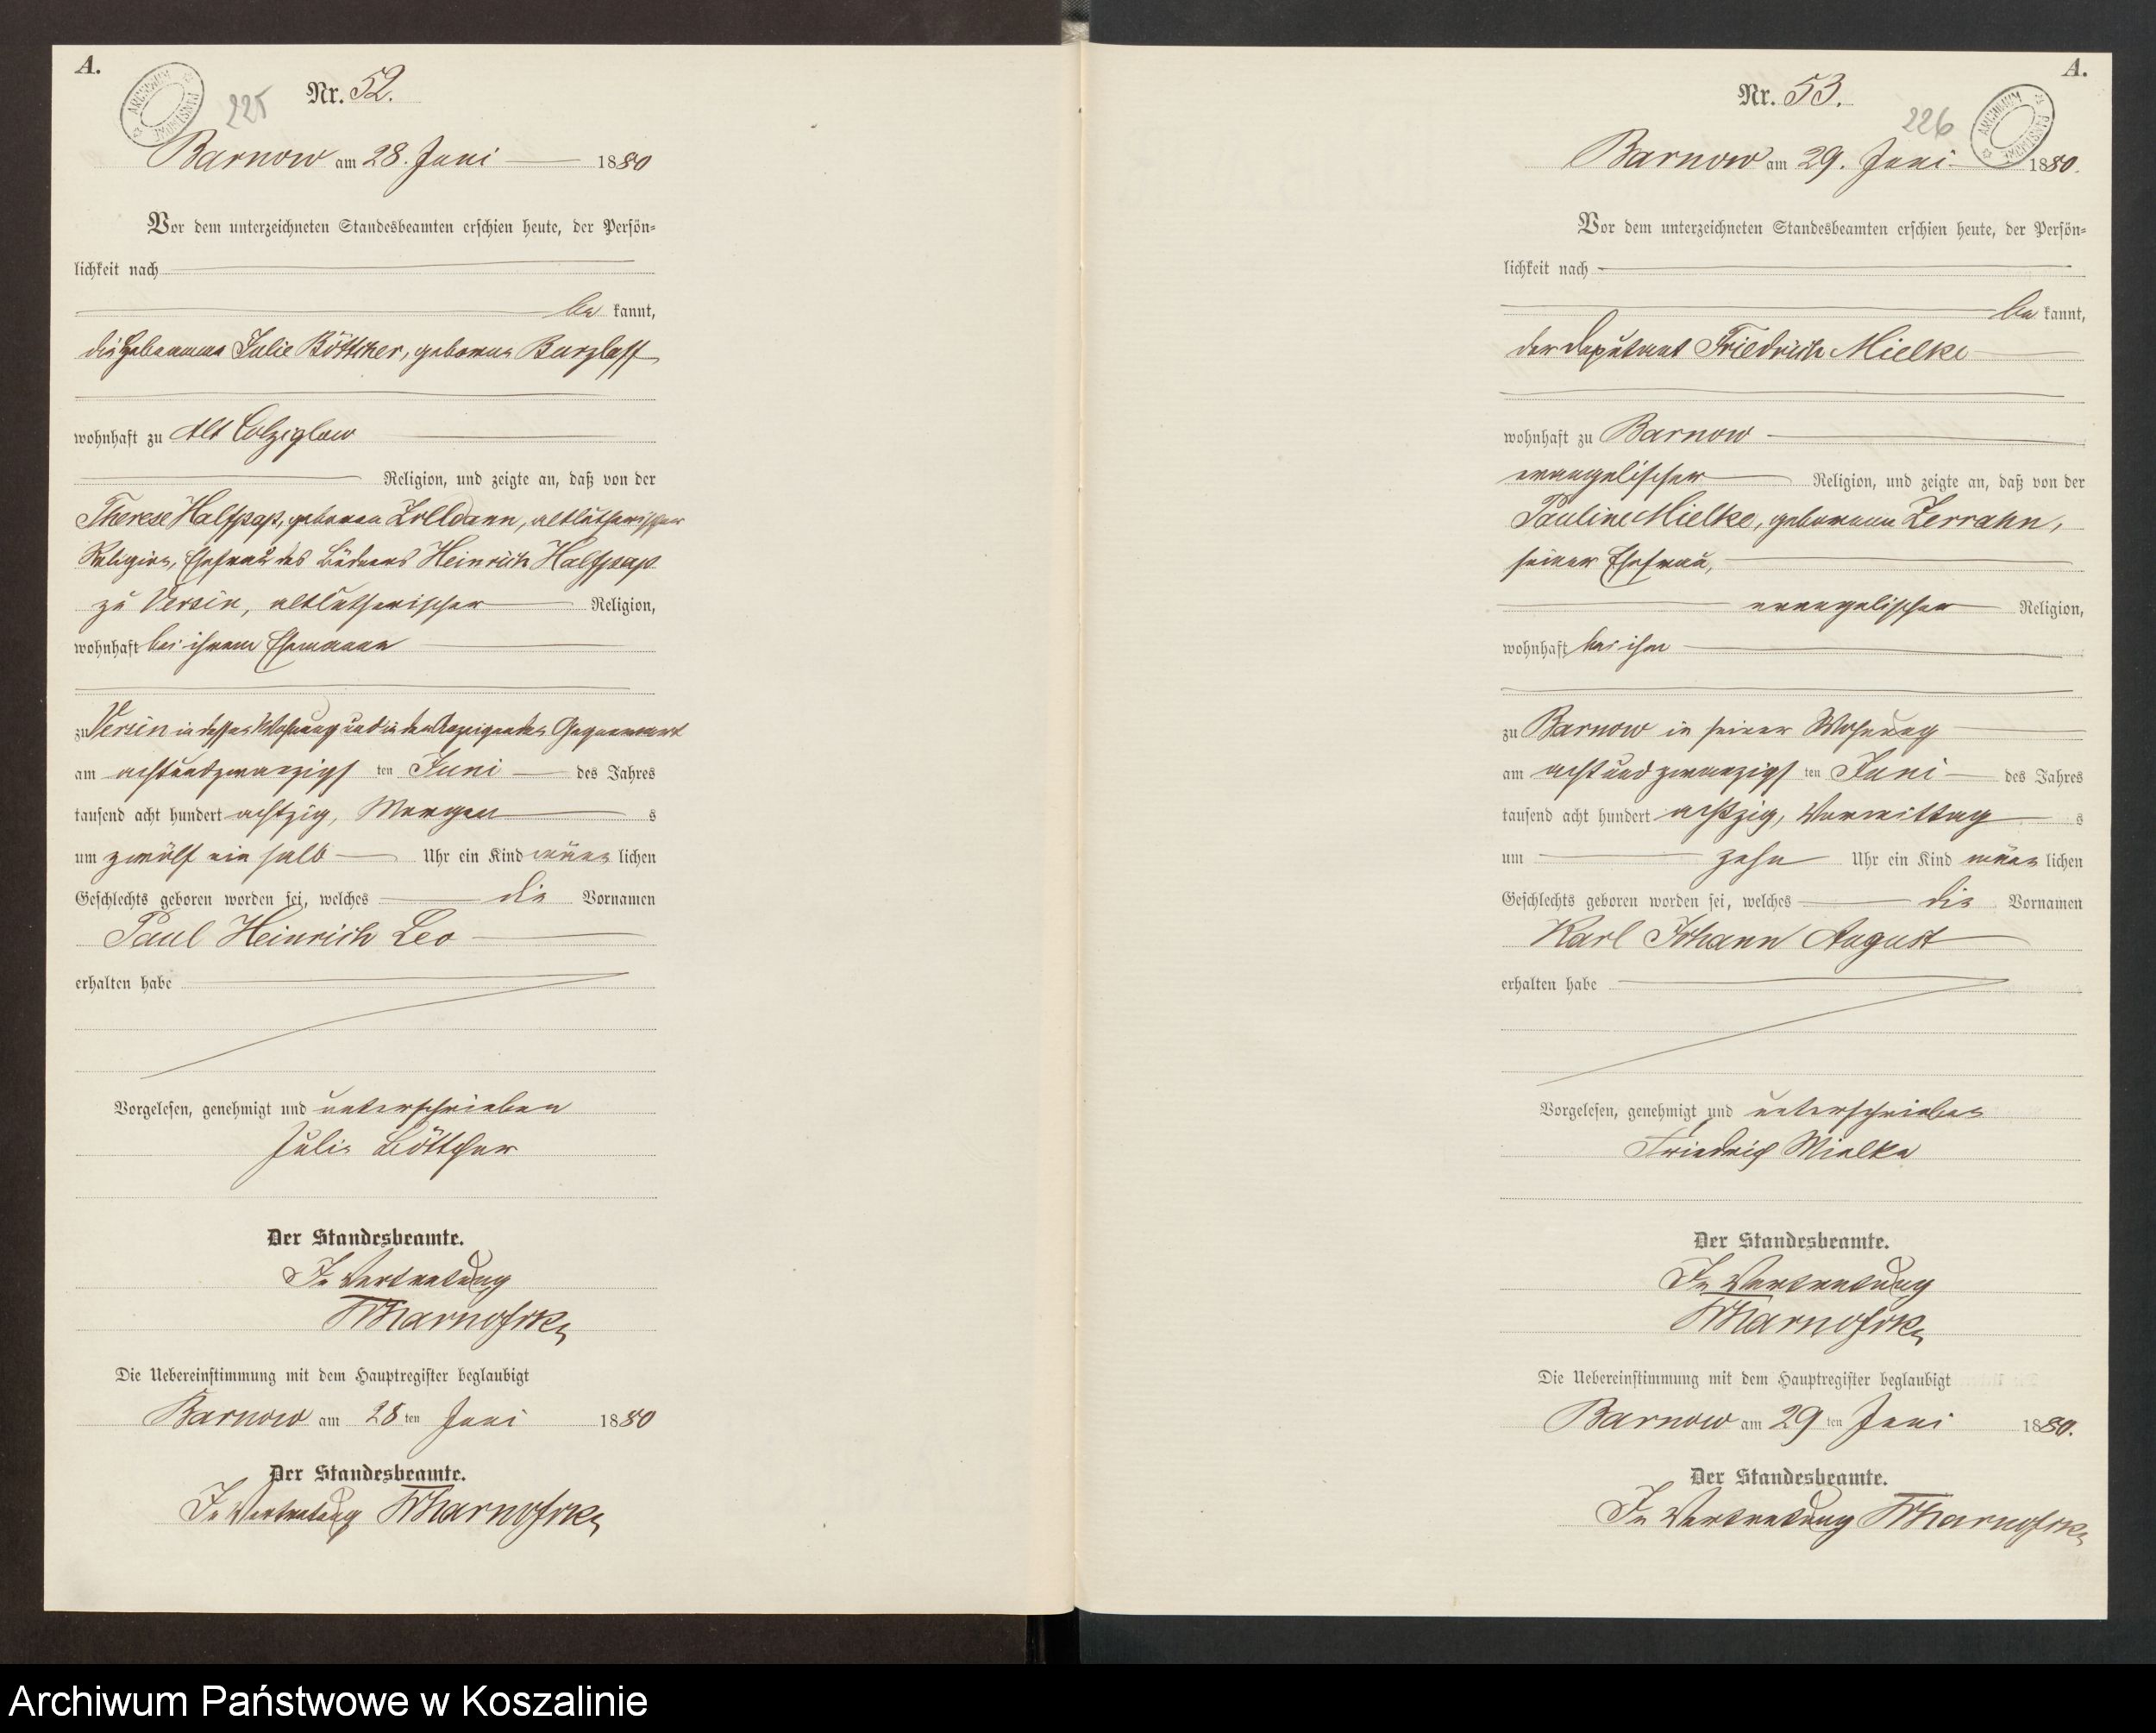 A.
ARCHIWUM PAŃSTWOWE
225
Nr. 52.
Barnow am 28. Juni 1880
Vor dem unterzeichneten Standesbeamten erschien heute, der Persön-
lichkeit nach
be kannt,
die Hebamme Julie Böttcher, geborene Barzlaff
wohnhaft zu Alt Colziglow
Religion, und zeigte an, daß von der
Therese Halfpap, geboren Zolldann, altlutherischer
Religion, Ehefrau des Büdners Heinrich Halfpap
zu Versin, altlutherischer Religion,
wohnhaft bei ihrem Ehemanne
zu Versin in dessen Wohnung und in der Anzeigenden Gegenwart
am achtundzwanzigs ten Juni des Jahres
tausend acht hundert achtzig, Morgen s
um zwölf ein halb Uhr ein Kind männ lichen
Geschlechts geboren worden sei, welches die Vornamen
Paul Heinrich Leo
erhalten habe
Vorgelesen, genehmigt und unterschrieben
Julie Böttcher
Der Standesbeamte.
In Vertretung
Die Uebereinstimmung mit dem Hauptregister beglaubigt
Barnow am 28 ten Juni 1880
Der Standesbeamte.
In Vertretung
A.
ARCHIWUM PAŃSTWOWE
226
Nr. 53.
Barnow am 29. Juni 1880.
Vor dem unterzeichneten Standesbeamten erschien heute, der Persön-
lichkeit nach
be kannt,
der Deputant Friedrich Mielke
wohnhaft zu Barnow
evangelischer Religion, und zeigte an, daß von der
Pauline Mielke, geborenen Zerrahn,
seiner Ehefrau,
evangelischer Religion,
wohnhaft bei ihm
zu Barnow in seiner Wohnung
am achtundzwanzigs ten Juni des Jahres
tausend acht hundert achtzig, Vormittag s
um zehn Uhr ein Kind männ lichen
Geschlechts geboren worden sei, welches die Vornamen
Karl Johann August
erhalten habe
Vorgelesen, genehmigt und unterschrieben
Friedrich Mielke
Der Standesbeamte.
In Vertretung
Die Uebereinstimmung mit dem Hauptregister beglaubigt
Barnow am 29 ten Juni 1880.
Der Standesbeamte.
In Vertretung
Archiwum Państwowe w Koszalinie